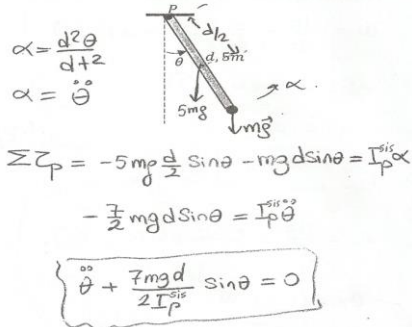 P
d/2
α = d²θ/dt²
θ
d, 5m
α = θ̈
5mg
α
mg⃗
Στₚ = -5mg d/2 Sinθ - mgdsinθ = Iₚˢⁱˢα
- 7/2 mgdSinθ = Iₚˢⁱˢθ̈
θ̈ + 7mgd/2Iₚˢⁱˢ Sinθ = 0